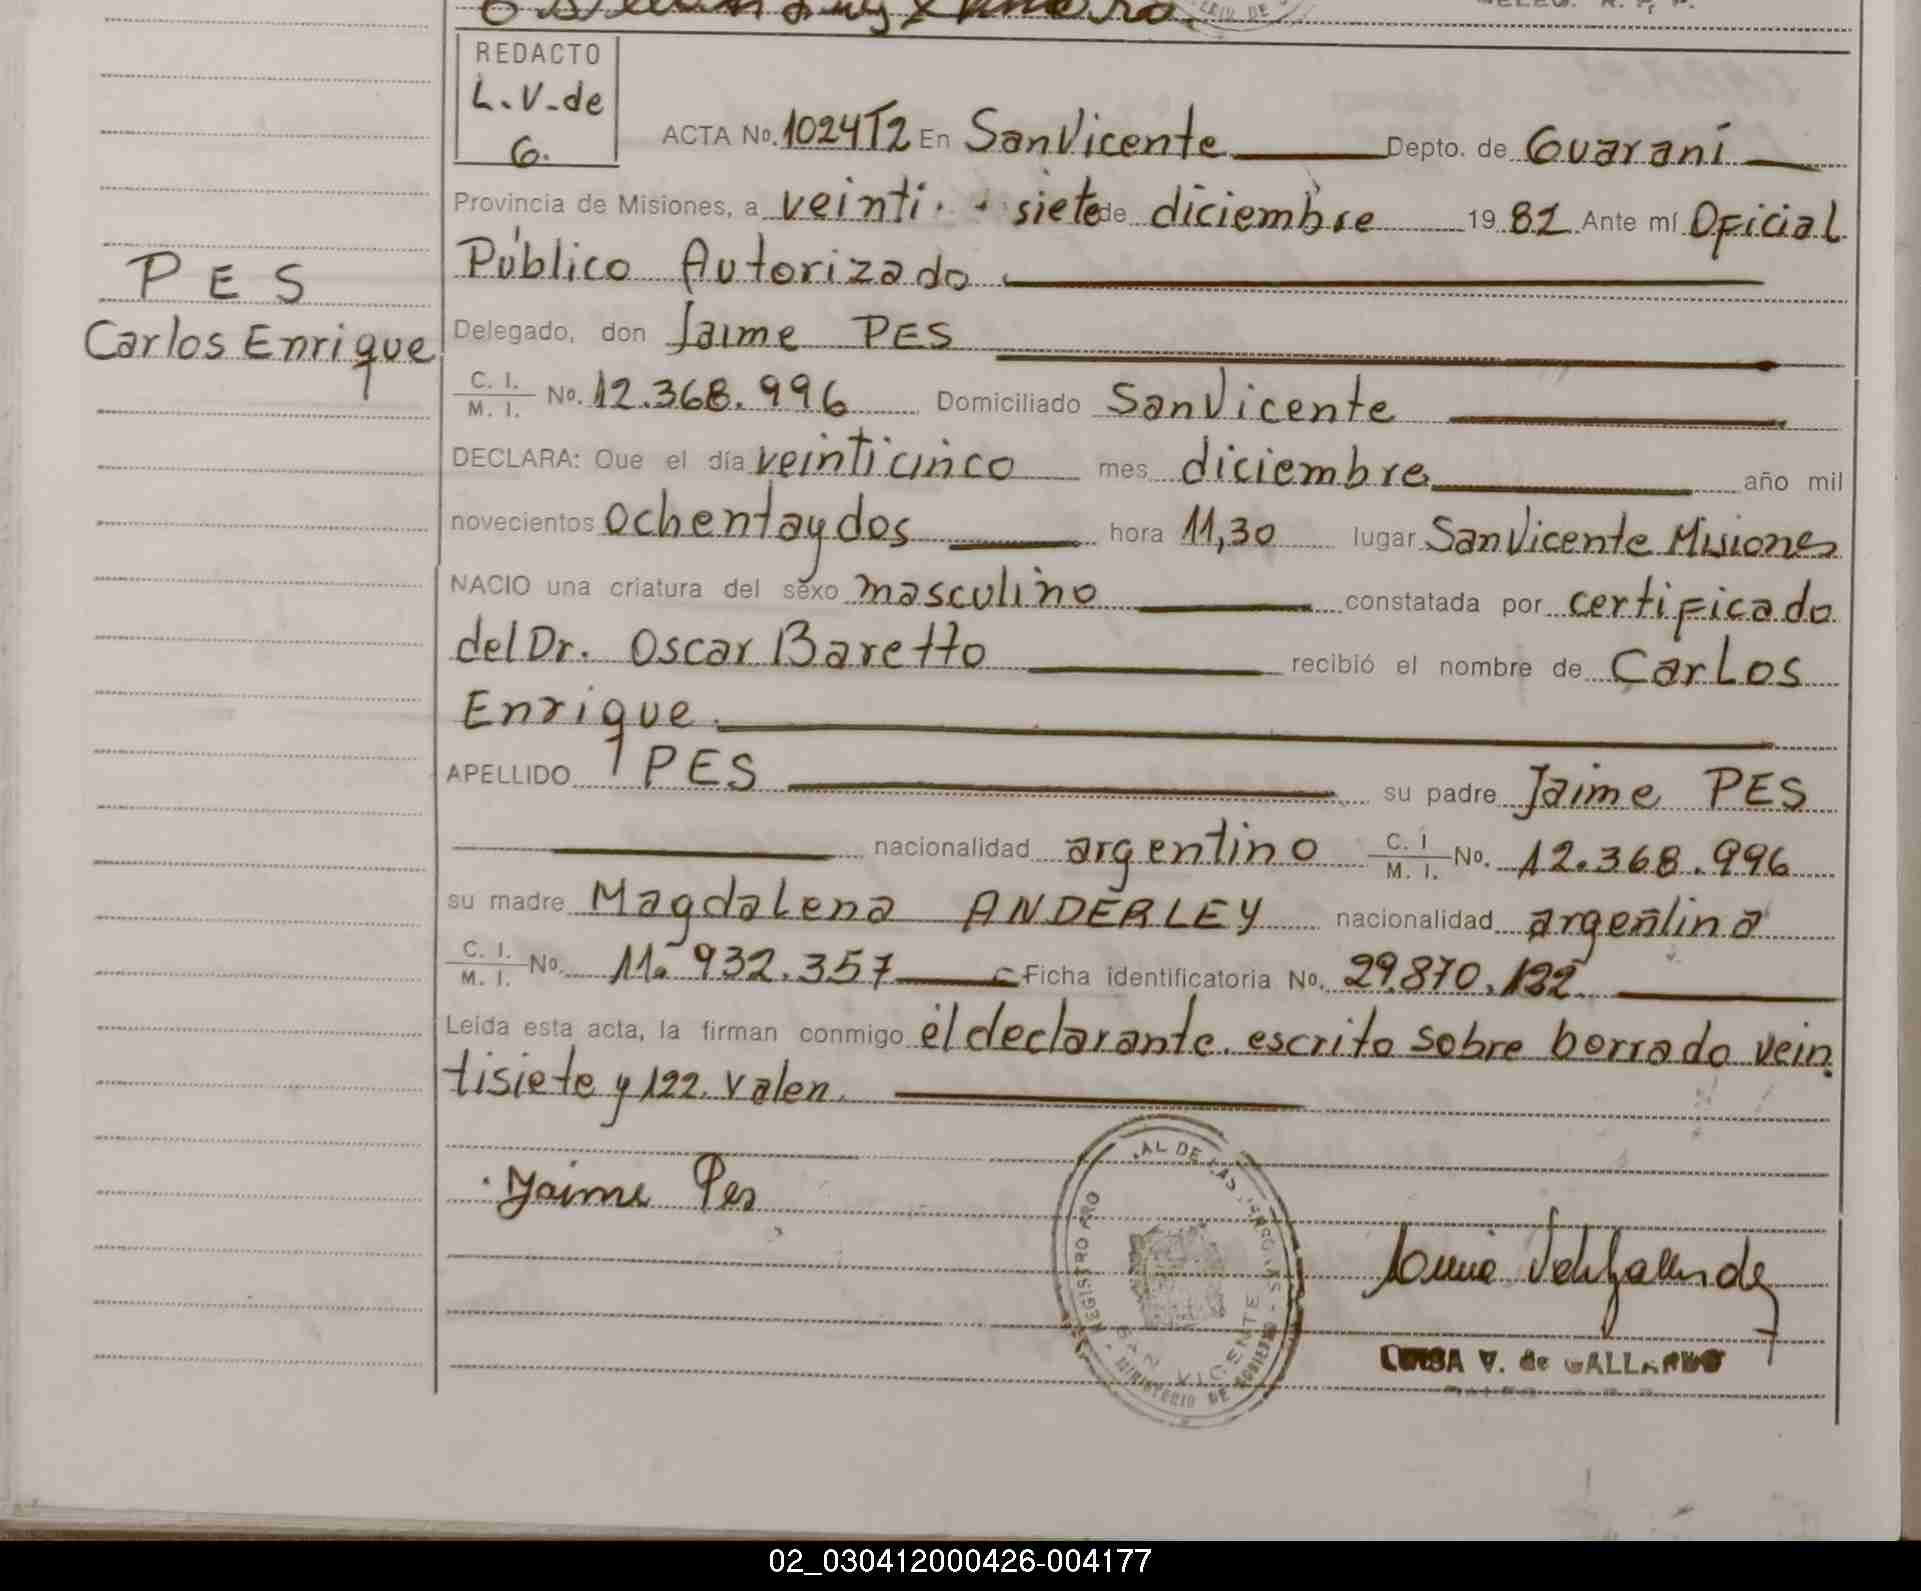 REDACTO
L.V.de
G.
ACTA No. 1024T2 En San Vicente Depto. de Guaraní
Provincia de Misiones, a veinti siete de diciembre 1982 Ante mí Oficial
Público Autorizado
Delegado, don Jaime PES
PES
Carlos Enrique
C. I. / M. I. No. 12.368.996 Domiciliado San Vicente
DECLARA: Que el día veinticinco mes diciembre año mil
novecientos ochenta y dos hora 11,30 lugar San Vicente Misiones
NACIO una criatura del sexo masculino constatada por certificado
del Dr. Oscar Baretto recibió el nombre de Carlos
Enrique
APELLIDO PES su padre Jaime PES
nacionalidad argentino C. I / M. I. No. 12.368.996
su madre Magdalena ANDERLEY nacionalidad argentina
C. I. / M. I. No. 11.932.357 Ficha identificatoria No. 29.870.122
Leída esta acta, la firman conmigo el declarante. escrito sobre borrado vein
tisiete y 122. valen.
Jaime Pes
AL DE LAS
REGISTRO PRO
SAN VICENTE
MINISTERIO DE GOBIERNO
LUISA V. de GALLARDO
02_030412000426-004177